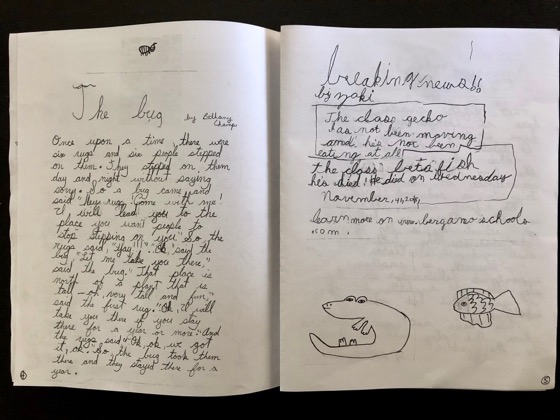 The bug
by Bethany
Once upon a time there were
six rugs and six people stepped
on them. They stepped on them
day and night without saying
sorry. So a bug came and
said "Hey rugs. Come with me!
I will lead you to the
place you want people to
stop stepping on you." So the
rugs said, "Yay!!!" "Ok," said the
bug "Let me take you there,"
said the bug. "That place is
north of a plant that is
tall— or very tall and fun,"
said the first rug. "Ok, I will
take you there if you stay
there for a year or more." And
the rugs said "Ok, ok we got
it, ok." So, the bug took them
there and they stayed there for a
year.
4
breaking news!!
by yaki
The class gecko
has not been moving
and he's not been
eating at all!
the class betafish
he's died! He died on Wednesday
November,
learn more on www.bergamoschools
.com.
5